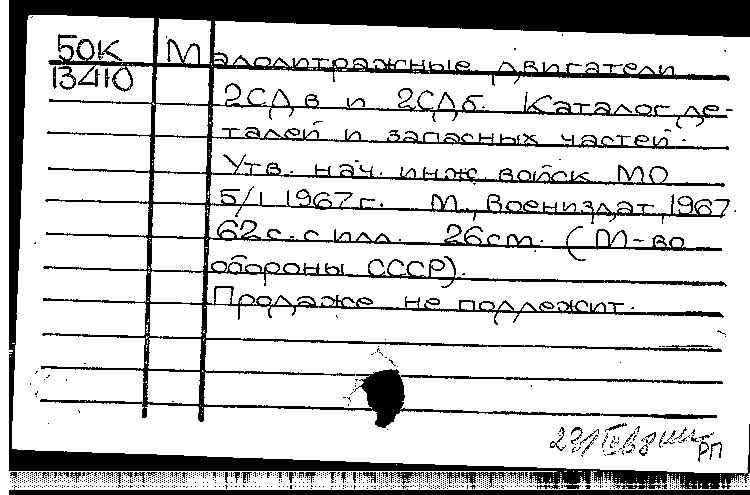 50К Малолитражные двигатели
13410
2СДв и 2СДб. Каталог де-
талей и запасных частей.
Утв. нач. инж. войск МО
5/I 1967г. М., Воениздат, 1967.
62с. с илл. 26см. (М-во
обороны СССР).
Продаже не подлежит.
РП